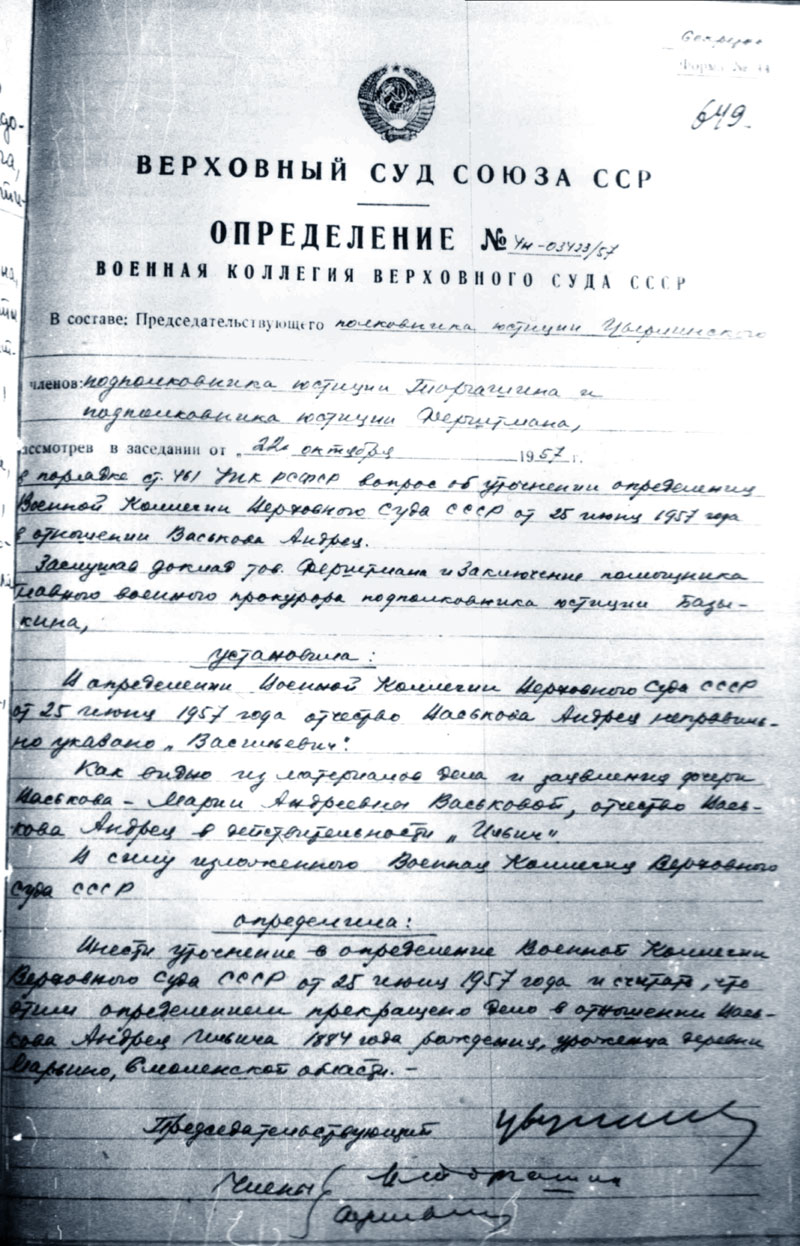 Секретно
Форма № 44
649.
ВЕРХОВНЫЙ СУД СОЮЗА ССР
ОПРЕДЕЛЕНИЕ № 4н-03423/57
ВОЕННАЯ КОЛЛЕГИЯ ВЕРХОВНОГО СУДА СССР
В составе: Председательствующего полковника юстиции Цырлинского
членов: подполковника юстиции Торгашина и
подполковника юстиции Ферштмана,
ассмотрев в заседании от „22 октября 1957 г.
в порядке ст. 461 УПК РСФСР вопрос об уточнении определения
Военной Коллегии Верховного Суда СССР от 25 июня 1957 года
в отношении Васькова Андрея.
Заслушав доклад тов. Ферштмана и заключение помощника
Главного военного прокурора подполковника юстиции Базы-
кина,
установила:
В определении Военной Коллегии Верховного Суда СССР
от 25 июня 1957 года отчество Васькова Андрея неправиль-
но указано „Васильевич".
Как видно из материалов дела и заявления дочери
Васькова – Марии Андреевны Васьковой, отчество Вась-
кова Андрея в действительности „Ильич".
В силу изложенного Военная Коллегия Верховного
Суда СССР
определила:
Внести уточнение в определение Военной Коллегии
Верховного Суда СССР от 25 июня 1957 года и считать, что
этим определением прекращено дело в отношении Вась-
кова Андрея Ильича 1884 года рождения, уроженца деревни
Марьино, Смоленской области. –
Председательствующий
Члены